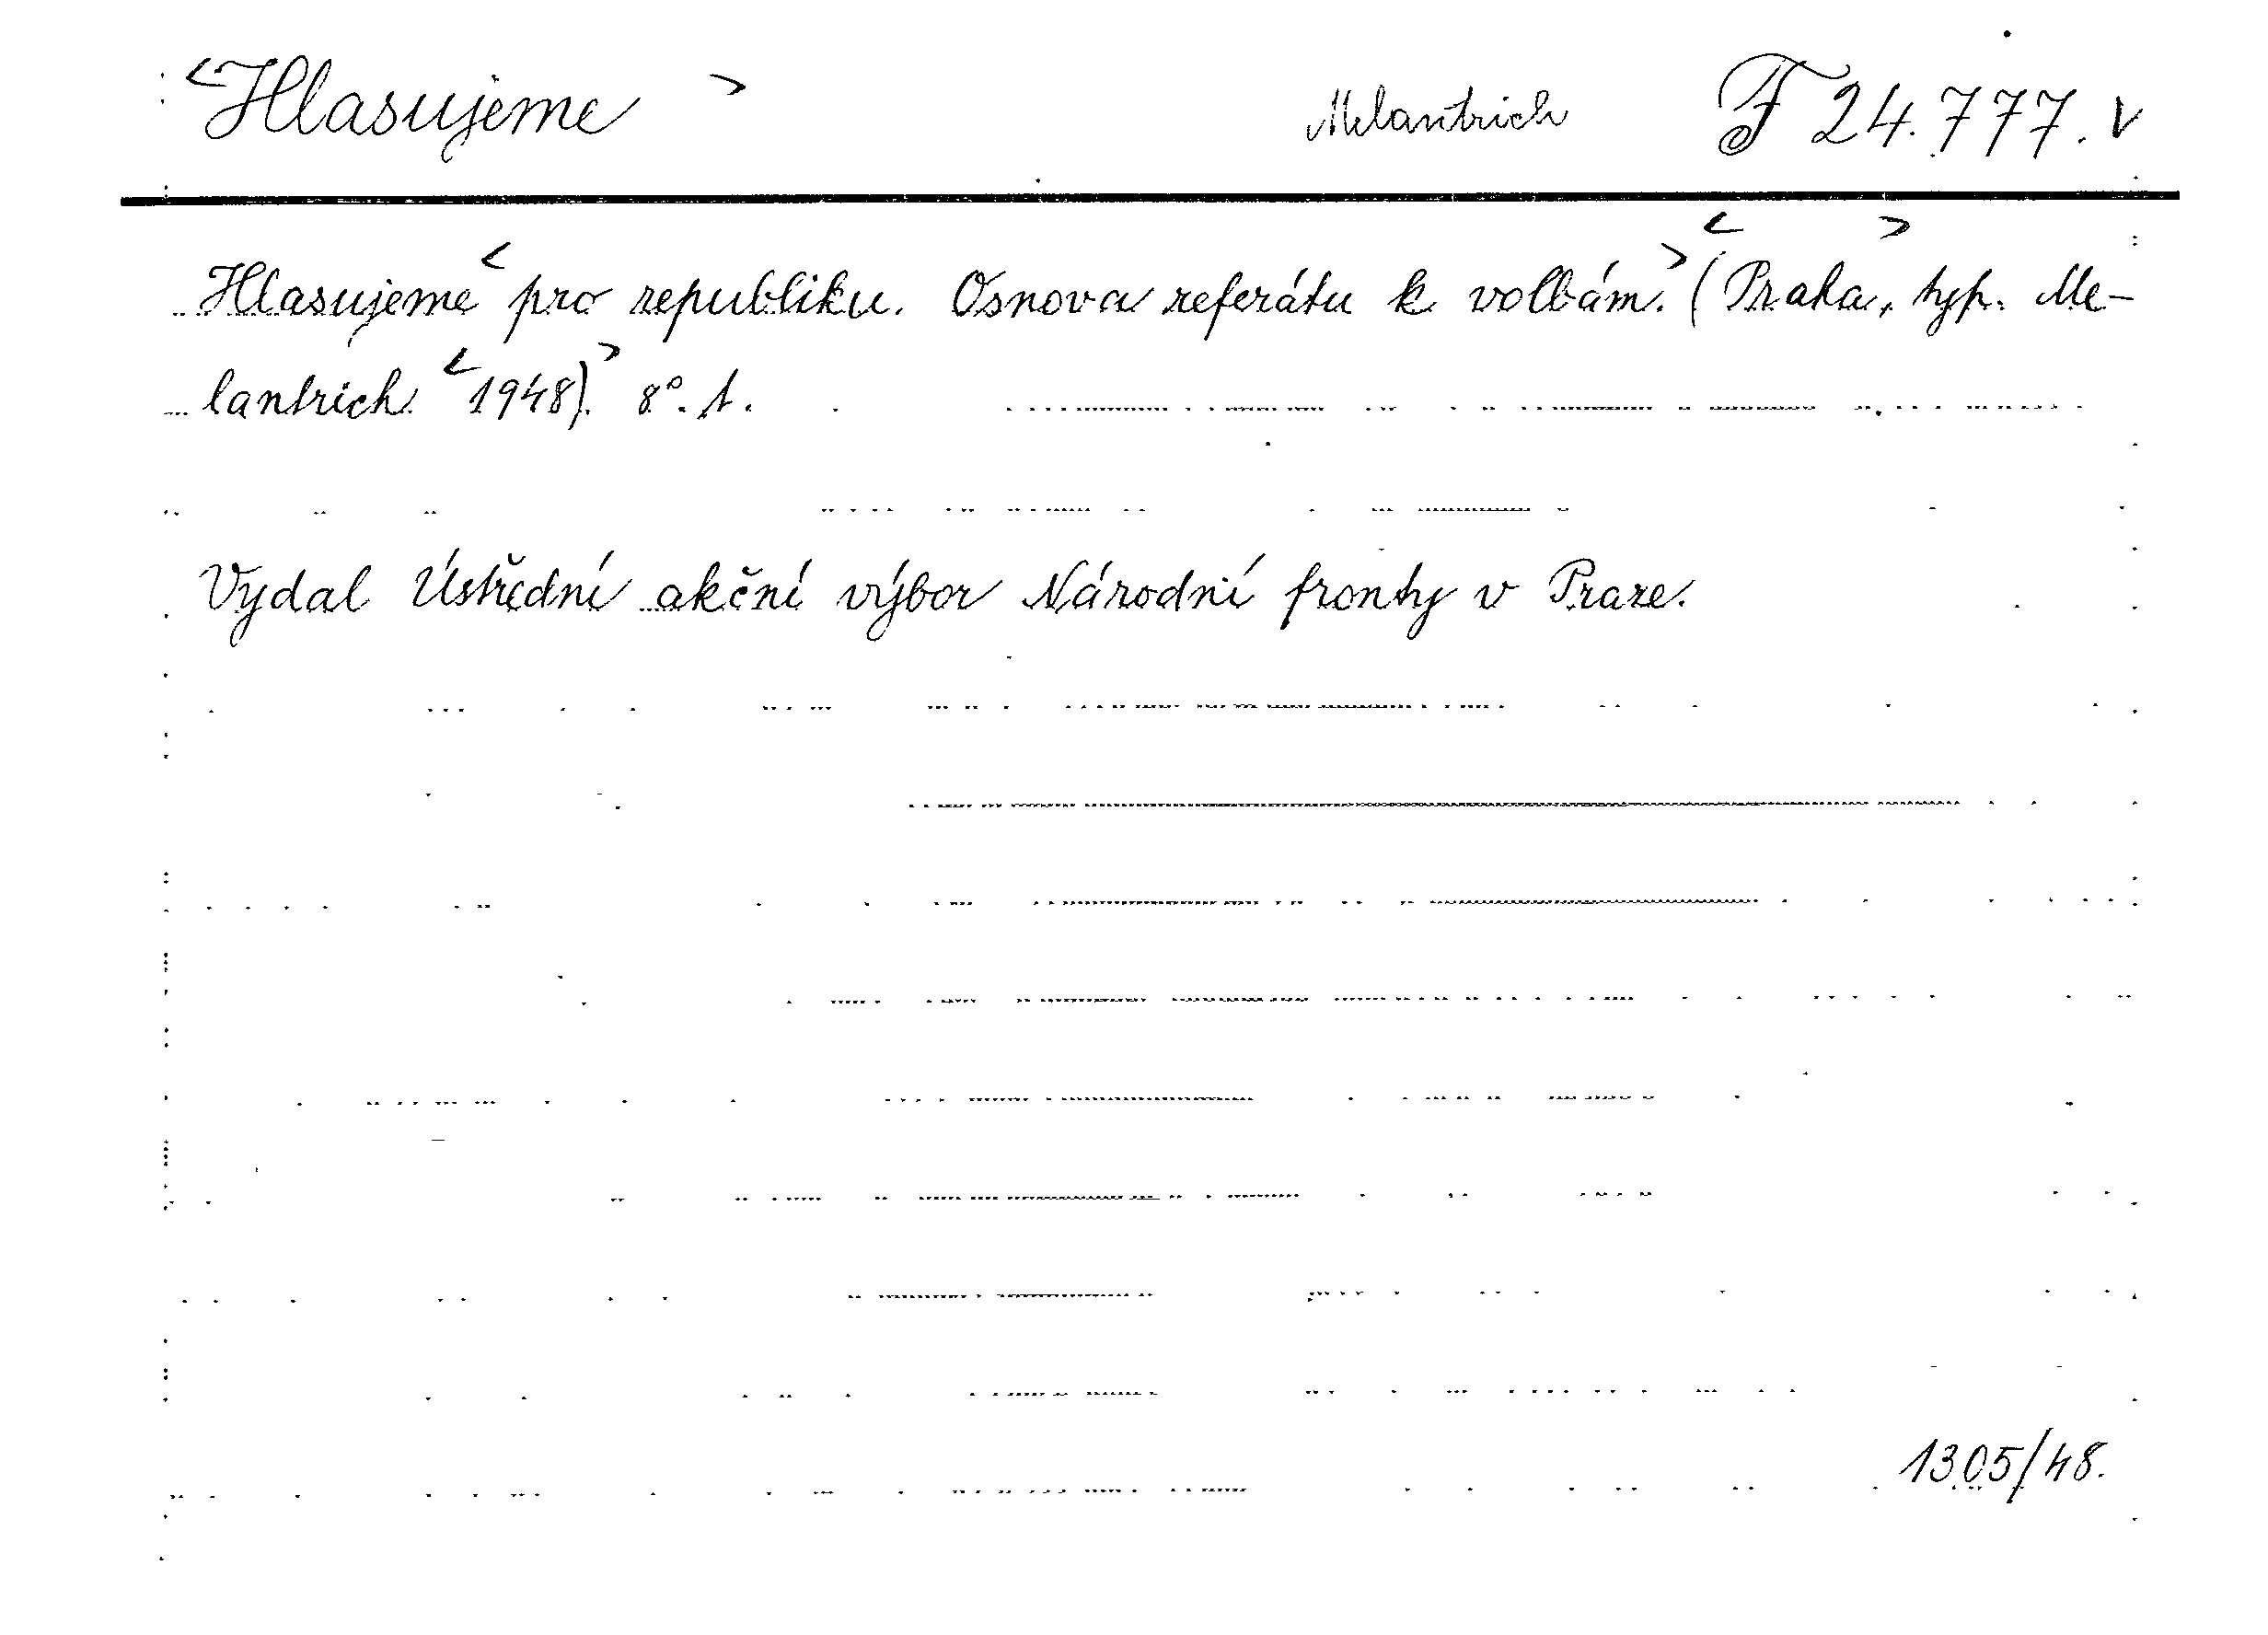 <Hlasujeme> Melantrich F 24.777. V
Hlasujeme <pro republiku. Osnova referátu k volbám.> (<Praha>, typ. Me-
lantrich <1948).> 8°. 1.
Vydal Ústřední akční výbor Národní fronty v Praze.
1305/48.